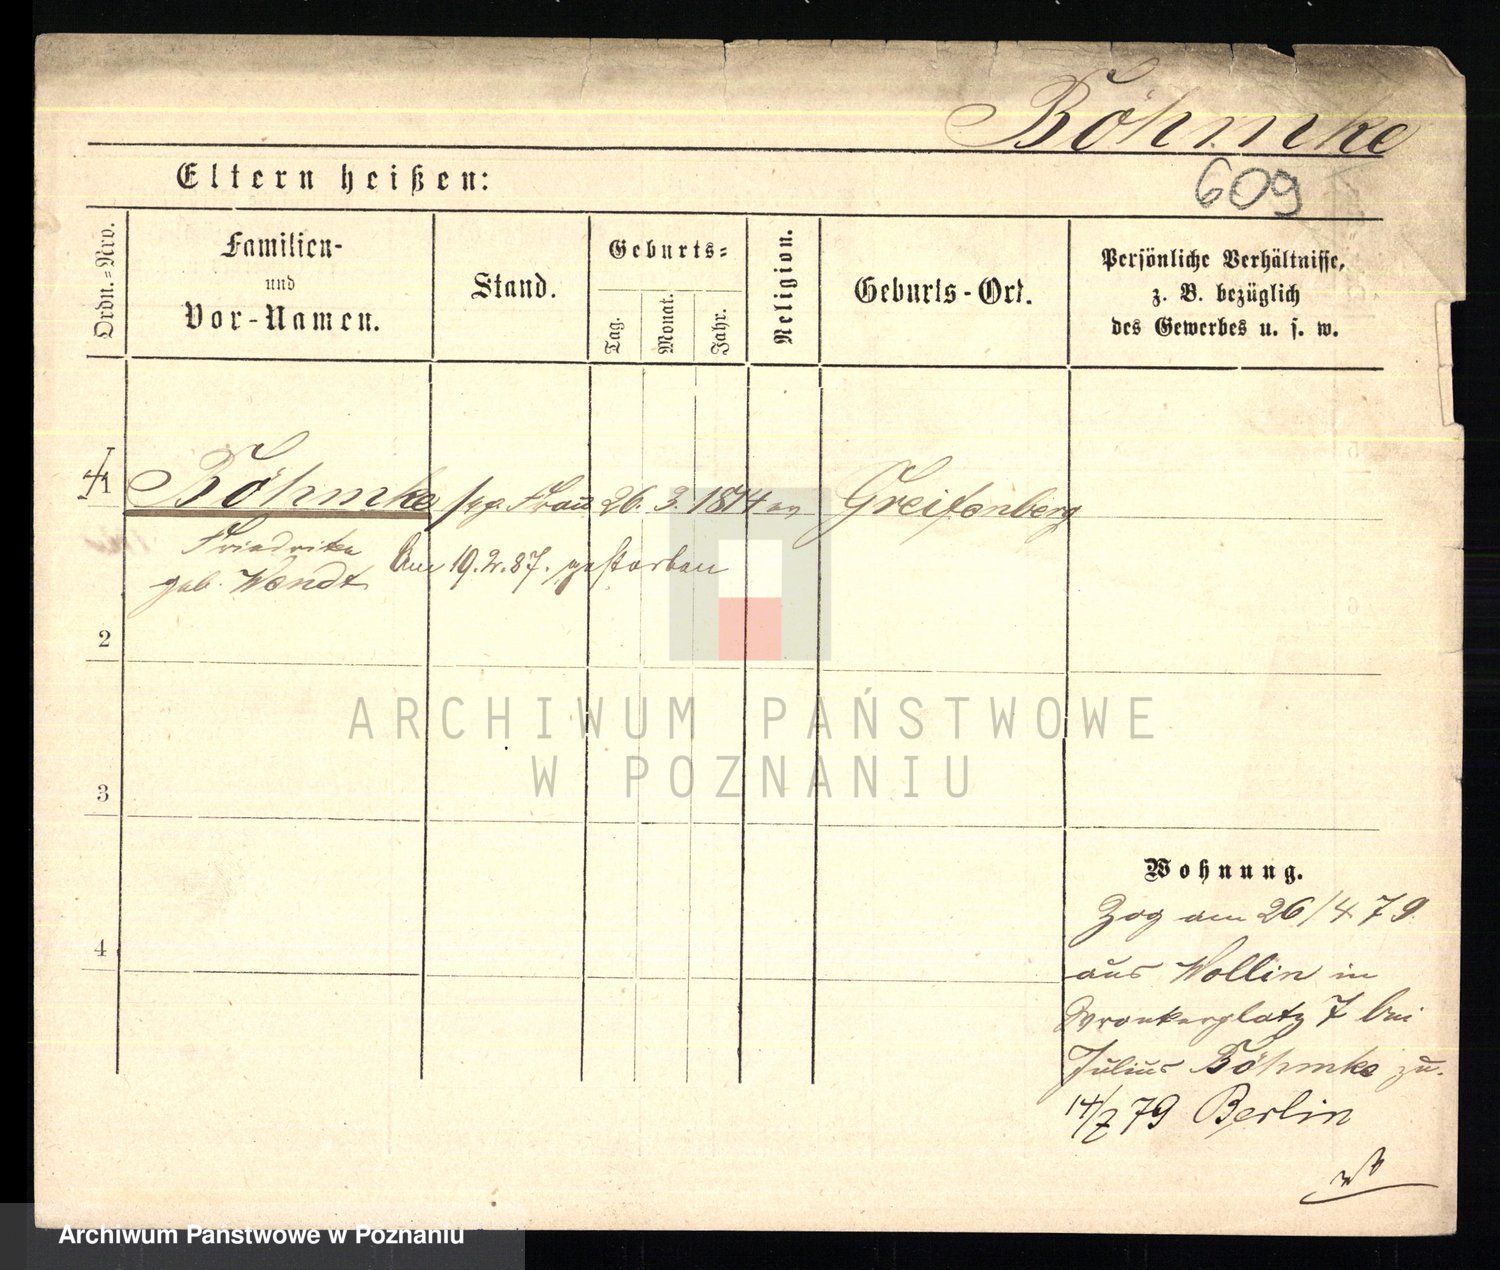 Böhmke
Eltern heißen:
609
Ordn.=Nro.
Familien-
und
Vor-Namen.
Stand.
Geburts=
Tag.
Monat.
Jahr.
Religion.
Geburts-Ort.
Persönliche Verhältnisse,
z. B. bezüglich
des Gewerbes u. s. w.
1
Böhmke
Frau 26. 3. 1814 ev Greifenberg
Friedrike
geb. Wendt
Am 19.2.87. gestorben
2
ARCHIWUM PAŃSTWOWE
W POZNANIU
3
Wohnung.
Zog am 26/4 79.
4
aus Wollin in
Wronkerplatz 7 bei
Julius Böhmke zu.
14/7 79 Berlin
Archiwum Państwowe w Poznaniu